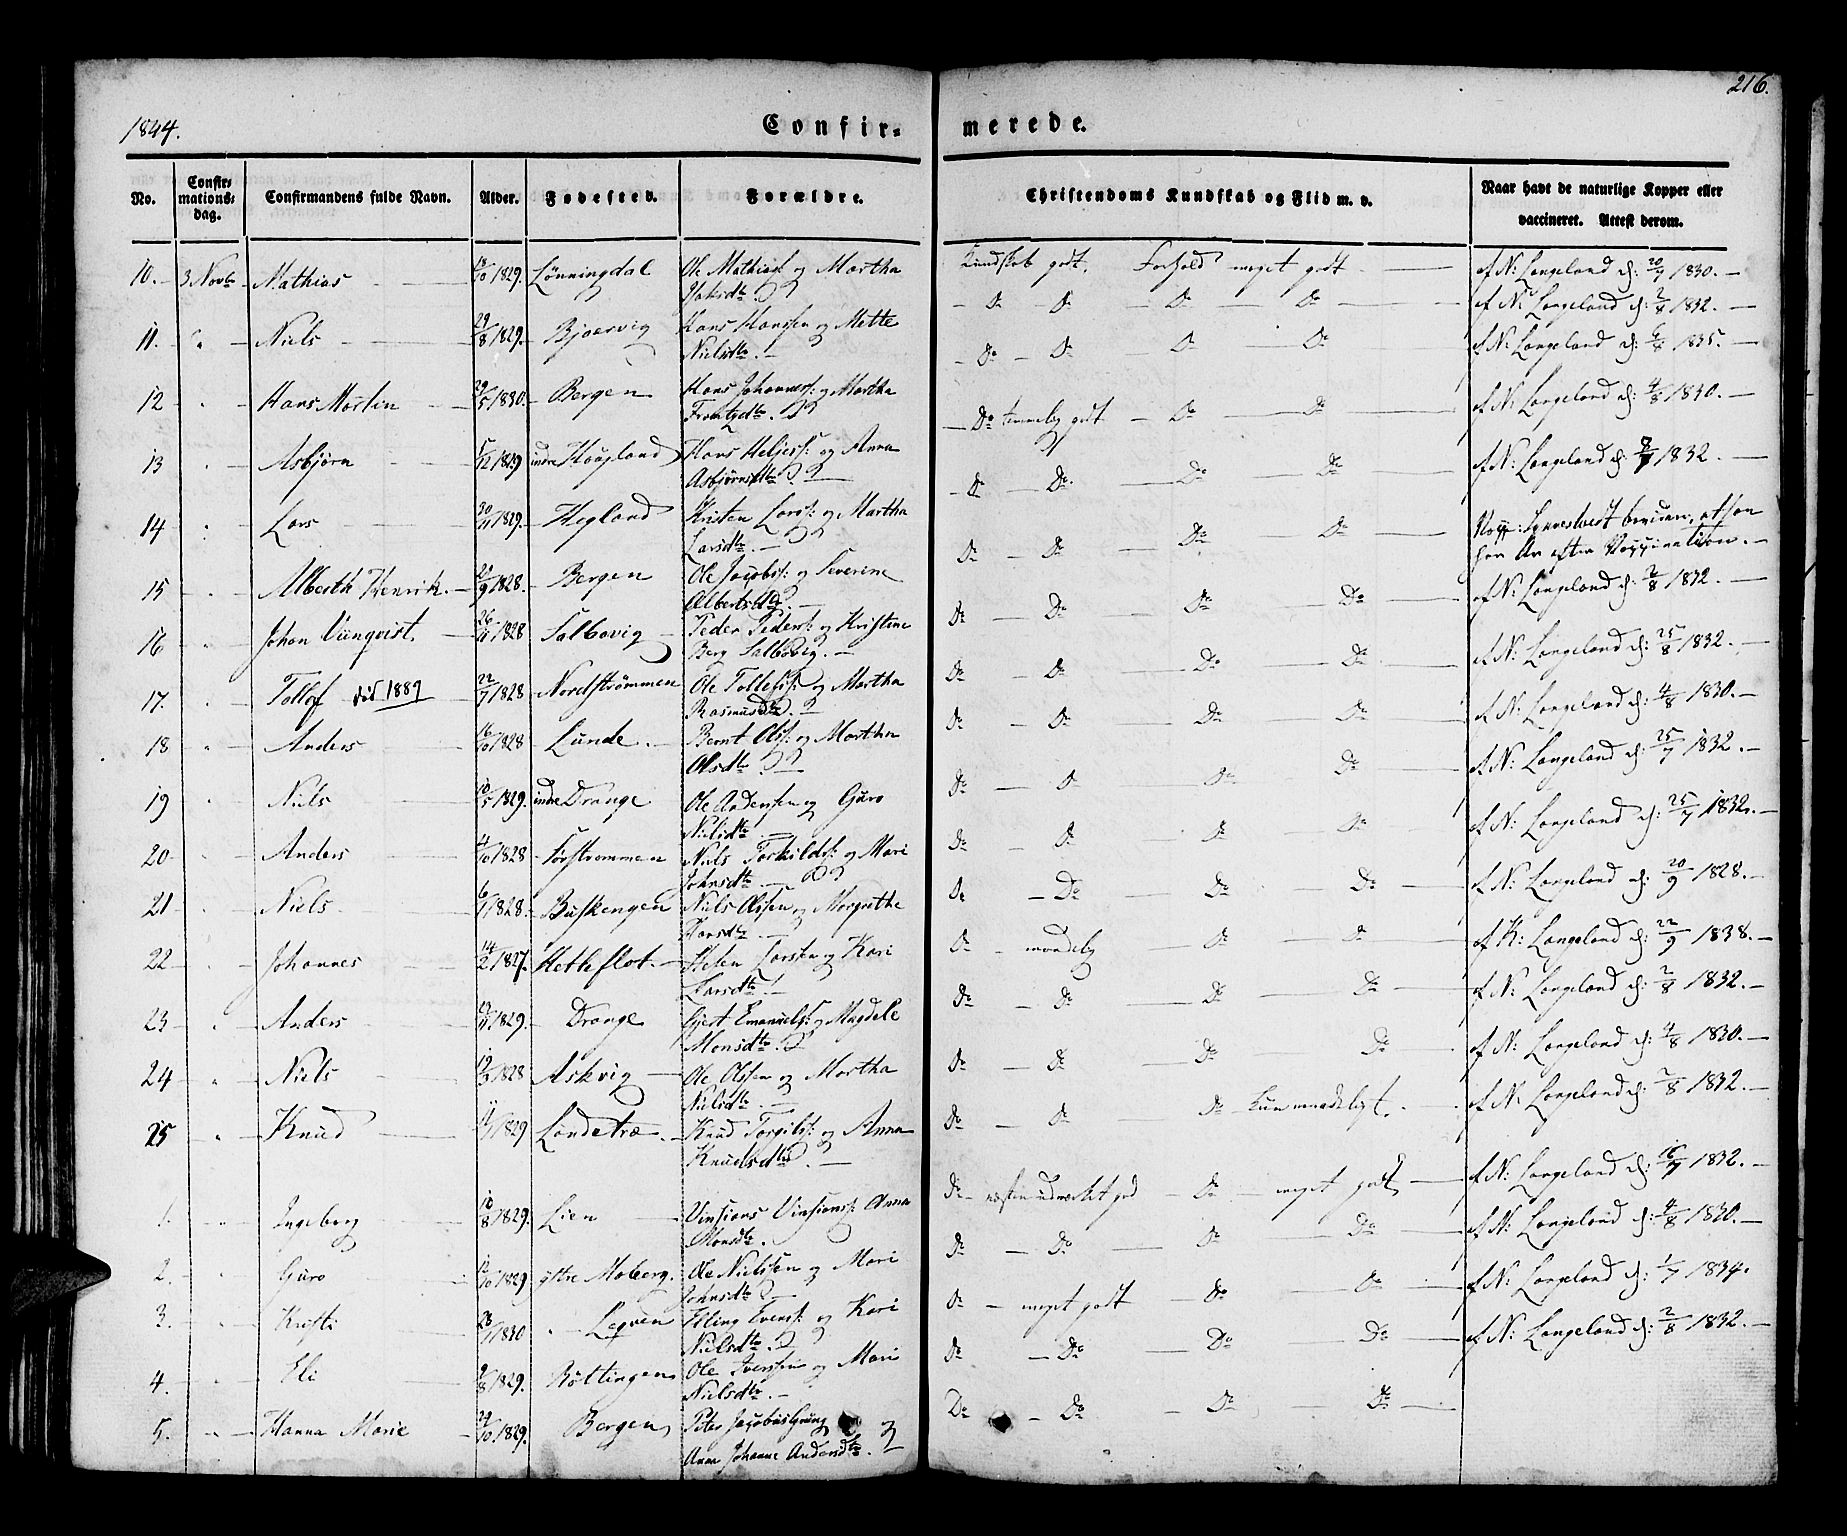 1844.
Confir-
merede.
216.
No.
Confir-
mations-
dag.
Confirmandens fulde Navn.
Alder.
Fødested.
Forældre.
Christendoms Kundskab og Flid m. v.
Naar havt de naturlige Kopper eller
vaccineret. Attest derom.
10. 3 Novbr Mathias 1829. Lønningdal Ole Mathias: og Martha
Kundskab godt. Forhold meget godt af N: Langeland d: 20/9 1830.
11. Niels 29/8 1829. Bjørvig Hans Hansen og Mette
Nielsdtr.
Do Do Do Do af N: Langeland d: 2/8 1832.
12 Hans Martin 29/5 1830. Bergen Hans Johannes: og Martha
Do Do Do Do af N: Langeland d: 6/8 1835.
13 Asbjørn 1829 indre Hougland Hans Heljes: og Anna
Asbjørnsdtr.
Do temmelig godt Do Do af N: Langeland d: 4/8 1830.
14 Lars 30/11 1829. Hegland Kristen Lars: og Martha
Larsdtr.
Do Do Do Do af N: Langeland d: 1832.
15 Alberth Henrik. 1828 Bergen Ole Jacobs: og Severine
Do Do Do Do
16 Johan 26/11 1828 Salbovig Peder Peders: og Kristine
Berg Salbovig.
Do Do Do Do af N: Langeland d: 2/8 1832.
17. Tollef død 1889 22/7 1828 Nordstrømmen Ole Tollefs: og Martha
Rasmusdtr.
Do Do Do Do af N: Langeland d: 25/8 1832.
18 Anders 16/10 1828 Lunde. Bernt Ols: og Martha
Olsdtr.
Do Do Do Do af N: Langeland d: 4/8 1830.
19 Niels 10/5 1829. indre Drange Ole Andersen og Guro
Nielsdtr.
Do Do Do Do af N: Langeland d: 25/7 1832.
20 Anders 4/10 1828 Niels Torkilds: og Mari
Johnsdtr.
Do Do Do Do af N: Langeland d: 25/7 1832.
21 Niels 6/1 1828. Buskengen Niels Olsen og Margrethe
Hansdtr.
Do Do Do Do af N: Langeland d: 20/9 1828.
22 Johannes 14/2 1827. Hetleflot. Larsen og Kari
Larsdtr.
Do maadelig Do Do af N: Langeland d: 22/9 1838.
23 Anders 1829. Drange Gjert Emanuels: og Magdele
Monsdtr.
Do Do Do Do af N: Langeland d: 2/8 1832.
24 Niels 1828 Askvig Ole Olsen og Martha
Nielsdtr.
Do Do Do Do af N: Langeland d: 4/8 1830.
25 Knud 1829 Londetræ. Knud Torgils: og Anna
Knudsdtr.
Do Do Do Kun maadeligt. af N: Langeland d: 2/8 1832.
1. Ingeborg 10/8 1829. Lien Vinsians Vinsians: Anna
Monsdtr.
Do næsten udmærket god Do meget godt af N: Langeland d: 16/7 1832.
2. Guro 12/10 1829 yttre Moberg. Ole Nielsen og Mari
Johnsdtr.
Do Do Do Do af N: Langeland d: 4/8 1830.
3. Kristi 1830 Legven Elling Ivers: og Kari
Nielsdtr.
Do meget godt Do Do af N: Langeland d: 1/7 1834.
4. Eli 9/8 1829. Røttingen Ole Iversen og Mari
Nielsdtr.
Do Do Do Do af N: Langeland d: 2/8 1832.
5. Hanna Marie 24/10 1829. Bergen Peter Jacobus Grung og
Anne Johanne Andersdtr.
Do Do Do Do